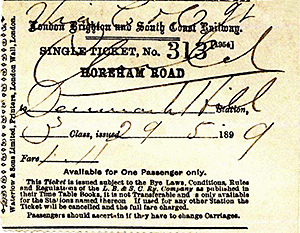 London Brighton and South Coast Railway.
SINGLE TICKET, No. 313 [1954]
HOREHAM ROAD
to Denmark Hill Station,
3 Class, issued 29 5 1899
Fare
Available for One Passenger only.
This Ticket is issued subject to the Bye Laws, Conditions, Rules
and Regulations of the L. B. & S. C. Ry. Company as published in
their Time Table Books, it is not Transferable and is only available
for the Stations named thereon If used for any other Station the
Ticket will be cancelled and the full fare charged.
Passengers should ascertain if they have to change Carriages.
Waterlow & Sons Limited, Printers, London Wall, London.